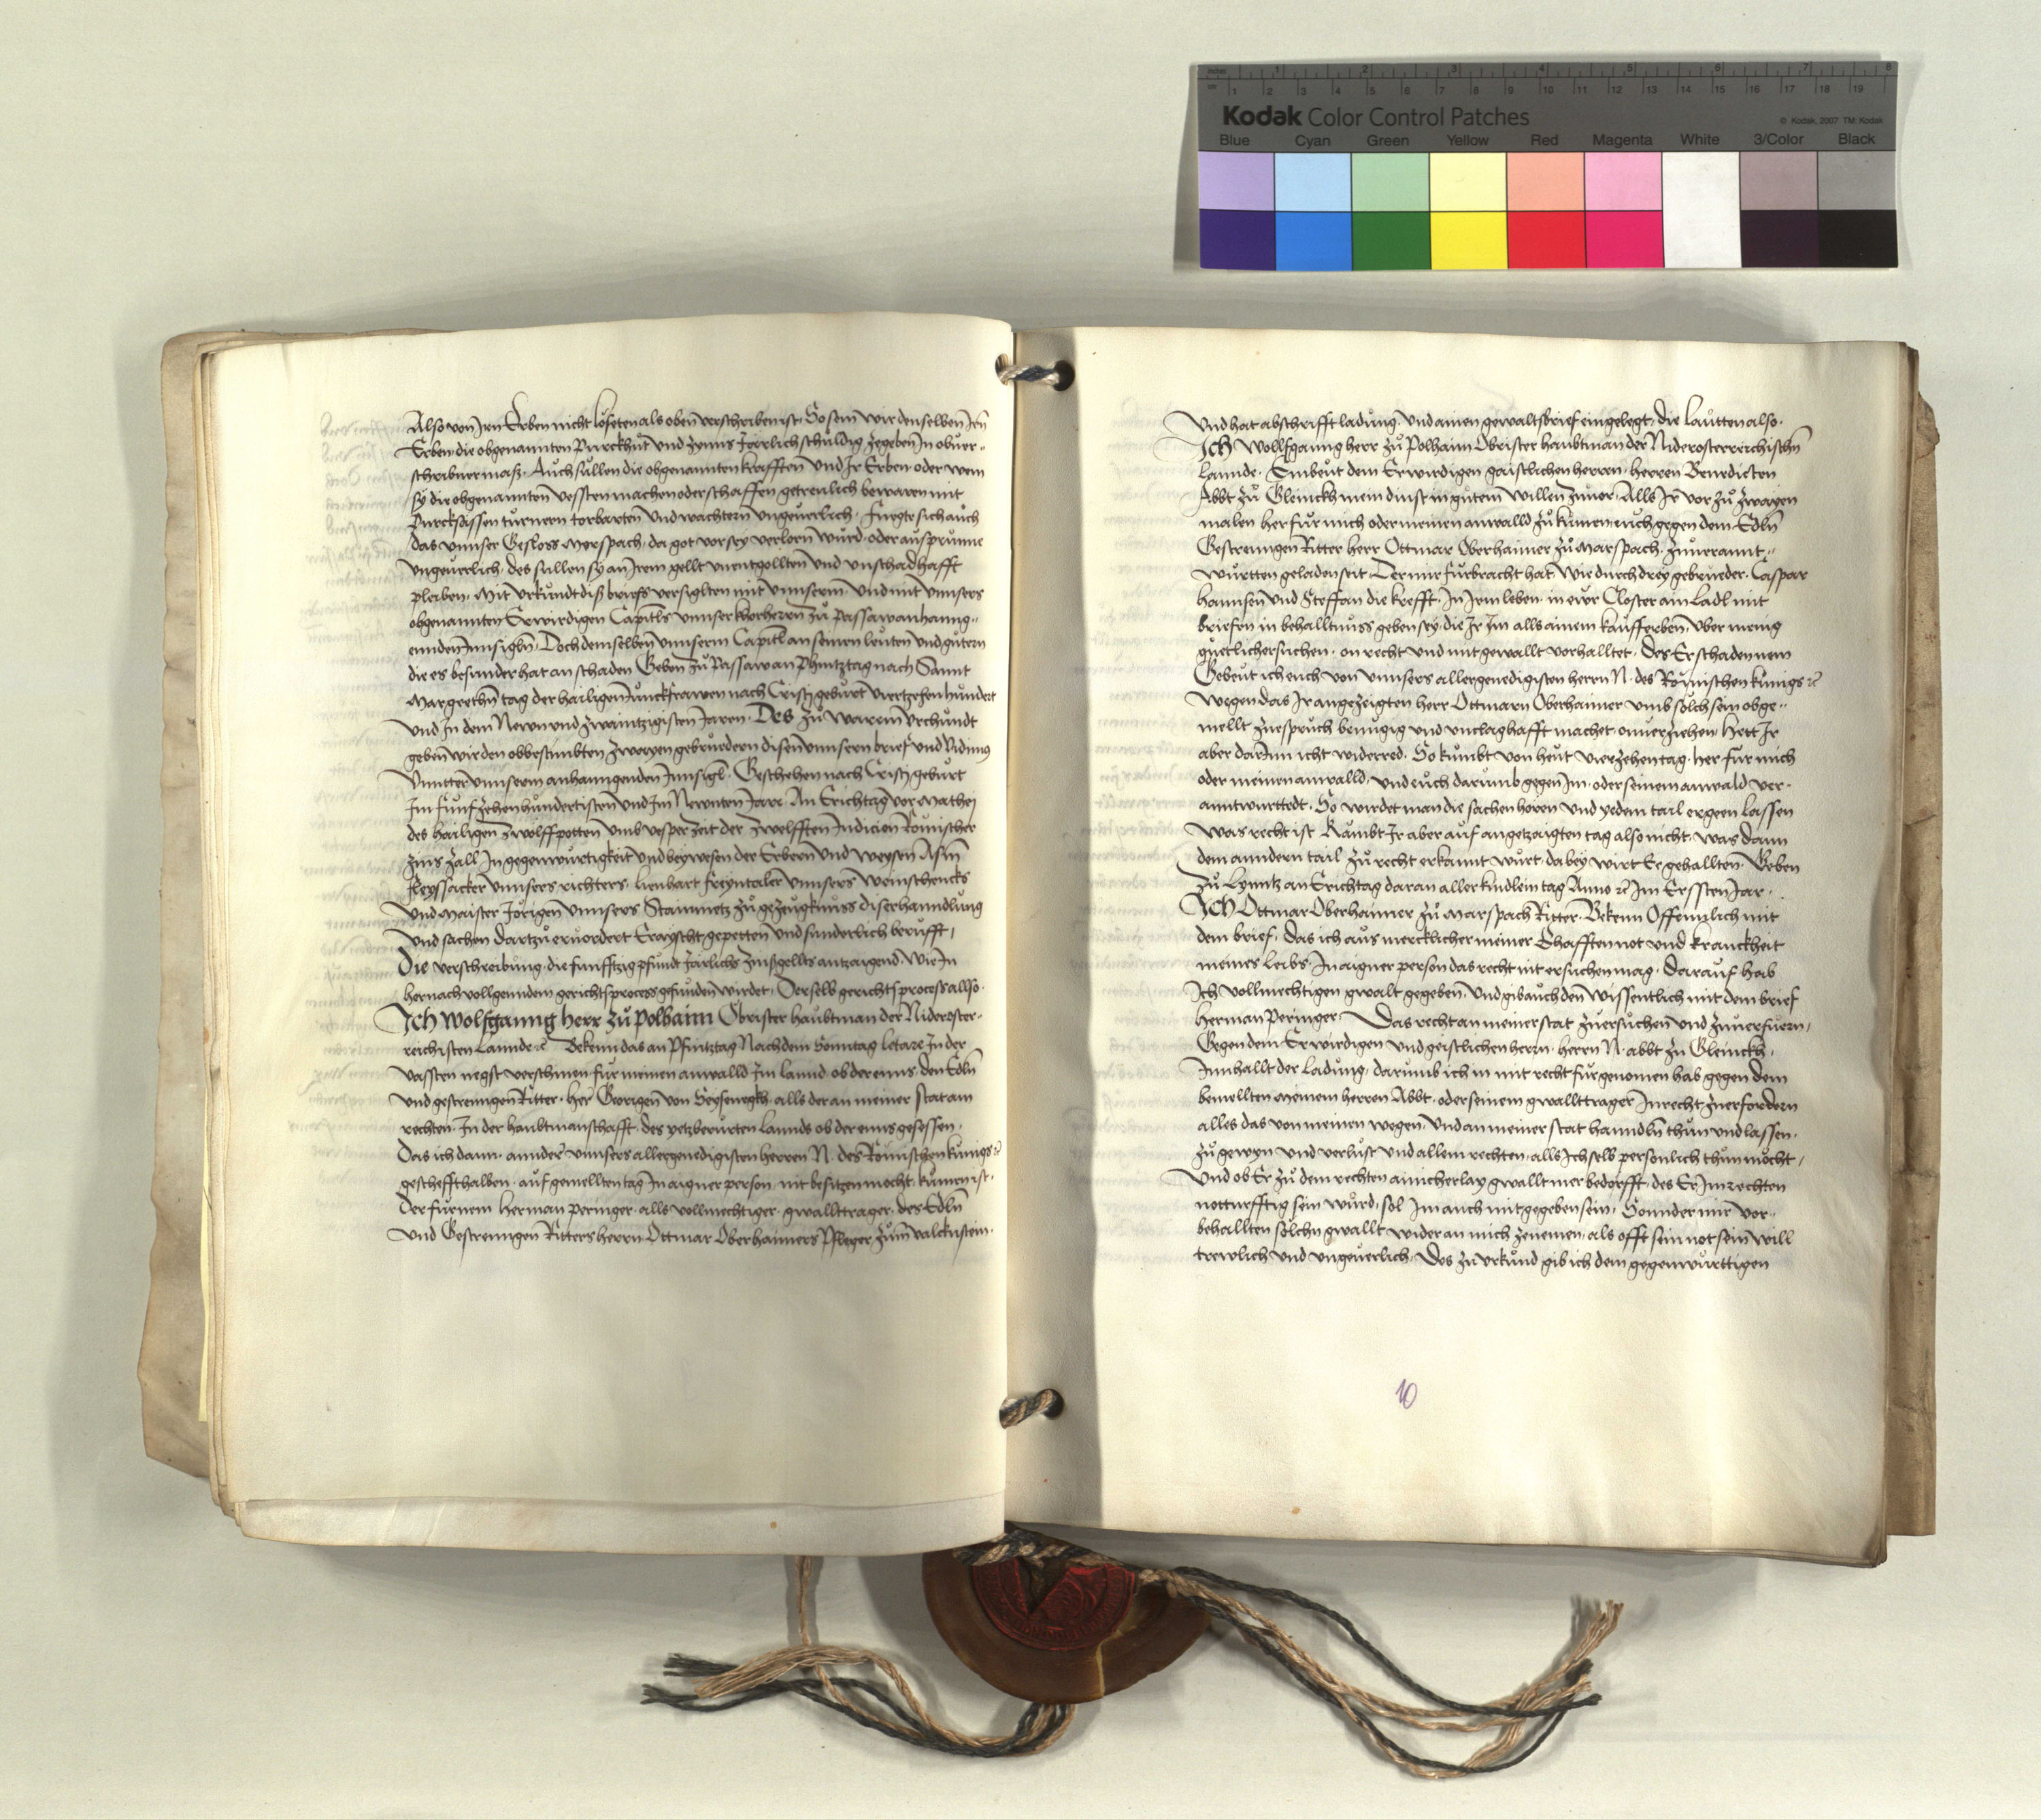 inches 1 2 3 4 5 6 7 8
cm 1 2 3 4 5 6 7 8 9 10 11 12 13 14 15 16 17 18 19
Kodak Color Control Patches © Kodak, 2007 TM: Kodak
Blue Cyan Green Yellow Red Magenta White 3/Color Black
Also von Irn Erben nicht loseten als oben verschriben ist. So sein wir denselben Irn
Erben die obgenannten Purckhůt und zenns Järrlich schuldig zegeben In obver-
schribner mass. Auch sullen die obgenannten krafften und Ir Erben oder wem
sy die obgenannten vessten machen oder schaffen getreulich bewaren mit
Purcksässen turnern torbarten und wachtern ungeuerlich. Fuegte sich auch
das unnser Gesloss Morspach, da got vor sey verlorn wurd. oder ausprunne
ungeuerlich, des sullen sy an Irem gellt unentgollten und unschadhafft
pleiben. Mit urkundt diss briefs versiglten mit unnserm. Und mit unnsers
obgenannten Erwirdigen Capitls unnser khorherrn zů Passaw anhanng-
ennden Innsigln. Doch demselben unnserm Capitl an seinen leuten und gutern
die es besunder hat an schaden Geben zů Passaw an Phintztag nach Sannt
Margrethn tag der hailigen Junckfrawen nach Cristj geburt viertzehenhundert
und In dem Newn und zwaintzigisten Jaren. Des zů warem Urchundt
geben wir den obbestimbten zwayen gebrůedern disen unnsern brief und Vidimus
Unntter unnserm anhanngenden Innsigl. Geschehen nach Cristj geburt
Im funfzehenhundertisten und Im Newnten Jare. An Erichtag vor Mathej
des hailigen zwölffpotten umb vesper zeit der zwelfften Indicion Römischer
zins zall In gegenwurtigkeit und beywesen der Erbern und weysen Asm
Reyssacker unnsers richters. Lienhart freyntaler unnsers weinschencks
und Maister Jorigen unnsers Stainmetz zů gezeugknuss diser hanndlung
und sachen dartzů eruordert Erayscht gepetten und sunderlich berufft,
Die verschreibung. die funfftzig pfundt Järlichs zinssgellts antzaigend. wie In
hernach vollgenndem gerichts process gefunden wirdet. Derselb gerichts process allso.
Ich Wolfganng herr zů Polhaim Obrister haubtman der Nideroster-
reichisten Lannde etc Bekenn das an Pfintztag Nach dem Sonntag letare In der
vassten negst verschinen fur meinen anwalld Im lannd ob der enns. den Edln
und gestrenngen Ritter. her Georigen von Seysenegkh. alls der an meiner stat am
rechten. In der haubtmanschafft. des yetzberurten lannds ob der enns gesessen.
Das ich dann. annder unnsers allergenedigisten herren N. des Römischen kunigs etc
geschefft halben. auf gemellten tag In aigner person nit besitzen mocht. kumen ist.
Der furnem Herman Peringer. alls vollmechtiger. gwallttrager. des Edln
und Gestrenngen Ritters herrn Ottmar Oberhaimers Pfleger zům valcknstein.
Und hat abschrifft ladung. Und ainen gewaltsbrief eingelegt. die lautten also.
Ich Wollfganng herr zů Polhaim Obrister haubtman der Niderosterreichischn
Lannde. Embeut dem Erwirdigen gaistlichen herren. herren Benedicten
Abbt zů Gleinckh mein dinst in gutem willen zuuor. Alls Ir vor zů zwayen
malen her fur mich oder meinen anwalld zů kumen. euch gegen dem Edln
Gestrenngen Ritter herr Ottmar Oberhaimer zů Marspach. zuuerannt-
wurtten geladen seit. Der mir furbracht hat. wie durch drey gebrueder. Caspar
Hannsen und Steffan die krefft. In Irm leben. in ewr Closter ain Ladl mit
briefen in behalltnuss geben sey. die Ir Im alls ainem kaufferben. uber menig
guetlich ersuchen. on recht und mit gewallt vorhalltet. des Er schaden nem
Gebeut ich euch von unnsers allergenedigisten herren N. des Römischen kunigs etc
wegen das Ir angezeigten herr Ottmarn Oberhaimer umb solch sein obge-
mellt zuespruch benugig und unclaghafft machet. onuerziehen. Hett Ir
aber darInn icht widerred. So kumbt von heut vierzehen tag. her fur mich
oder meinen anwalld. und euch darumb gegen Im. oder seinem anwald ver-
anntwurttedt. So wirdet man die sachen horen und yedem tail ergeen lassen
was recht ist. Kůmbt Ir aber auf angetzaigten tag also nicht. was dann
dem anndern tail zů recht erkannt wurt. dabey wirt Er gehallten. Geben
zů Lynntz an Erichtag daran aller kindlein tag Anno etc Im Erssten Jar.
Ich Ottmar Oberhaimer zů Marspach Ritter. Bekenn Offennlich mit
dem brief. Das ich aus mercklicher meiner Ehafften not und kranckheit
meines leibs. In aigner person das recht nit ersuchen mag. darauf hab
Ich vollmechtigen gwalt gegeben. Und gib auch den wissentlich mit dem brief
Herman Peringer. Das recht an meiner stat zuersuchen und zuuerfurn,
Gegen dem Erwirdigen und geistlichen herrn. herrn N. abbt zu Gleinckh,
Innhallt der Ladung, darumb ich in mit recht furgenomen hab gegen dem
bemellten meinem herren Abbt. oder seinem gwallttrager In recht zuerfordern
alles das von meinen wegen. Und an meiner stat hanndln thun und lassen.
zů gewyn und verlust und allem rechten. alls Ich selb personlich thun mocht,
Und ob Er zů dem rechten ainicherlay gwallt mer bedorfft. des Er Im rechten
notturfftig sein wurd, sol Im auch mitgegeben sein. Sonnder mir vor-
behallten solchn gwallt wider an mich zenemen. als offt sein not sein will
trewlich und ungeuerlich. Des zu urkund gib ich dem gegenwurttigen
10